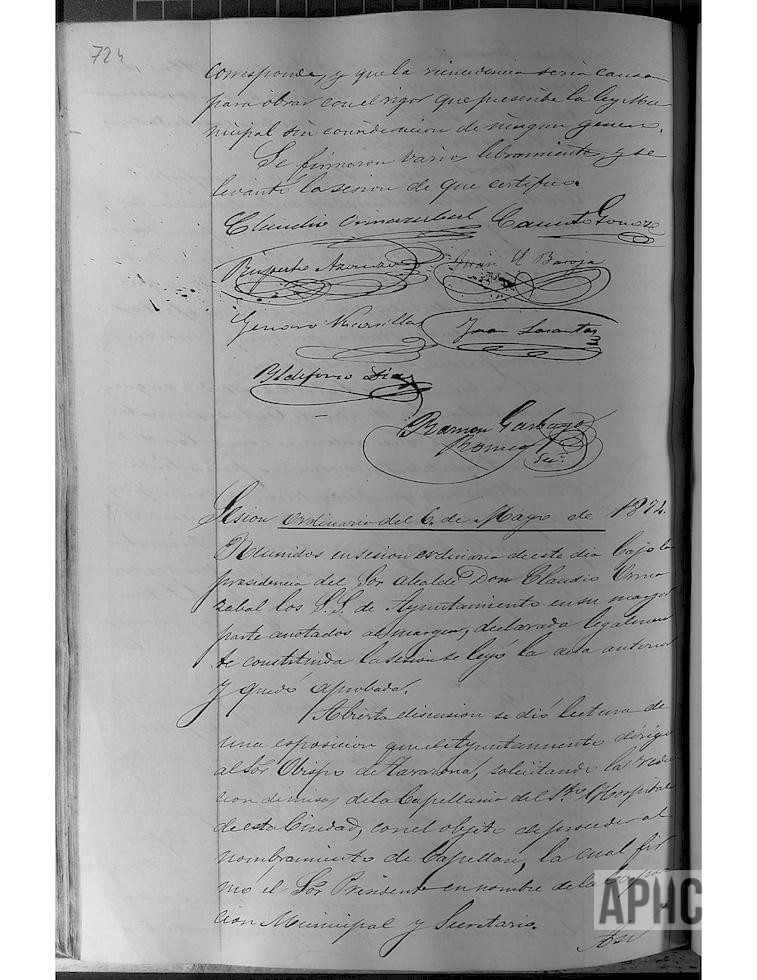 724
corresponde, y que la reincidencia seria causa
para obrar con el rigor que prescribe la ley Mu-
nicipal sin consideracion de ningun genero.
Se firmaron varios libramientos y se
levantó la sesion de que certifico.
Claudio Ormazabal Canuto Gomez
Ruperto Juan U Baroja
Genaro Juan
Yldefonso Diaz
Ramon Garbayo
Romeo
Sec.
Sesion ordinaria del 6 de Mayo de 1894.
Reunidos en sesion ordinaria de este dia bajo la
presidencia del Sor Alcalde Don Claudio Orma-
zabal los S.S. de Ayuntamiento en su mayor
parte anotados al margen, declarada legalmen-
te constituida la sesion se leyó la acta anterior
y quedó aprobada.
Abierta discusion se dió lectura de
una esposicion que el Ayuntamiento dirige
al Sor Obispo de Tarazona, solicitando la reduc
cion de misas de la Capellania del Sto Hospital
de esta Ciudad, con el objeto de proceder al
nombramiento de Capellan, la cual fir
mó el Sor Presidente en nombre de la Corpora
cion Municipal y Secretario.
APHC